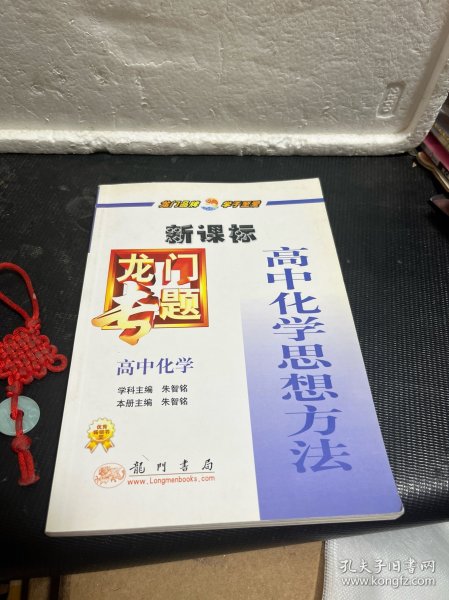 龙门品牌 学子至爱
新课标
龙门专题
高中化学
学科主编 朱智铭
本册主编 朱智铭
龍門書局
www.Longmenbooks.com
高中化学思想方法
孔夫子旧书网
www.kongfz.com